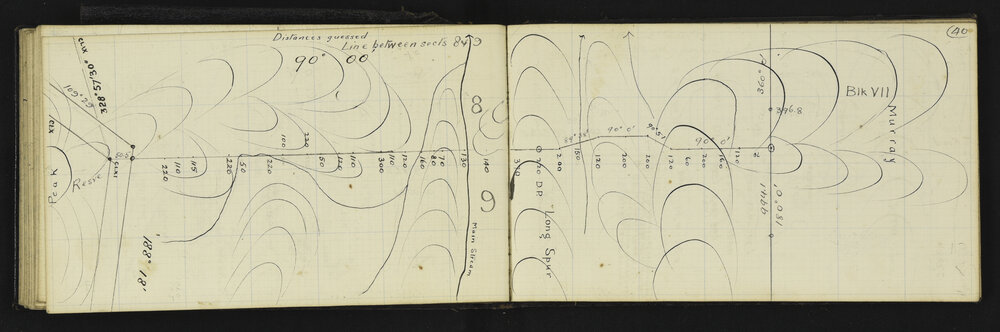 40
Distances guessed
Line between sects 8 & 9
90° 00'
328° 57' 30"
XIX
Peak
Resve
50.0
188° 18'
220
110
115
220
50
220
100
220
50
120
110
300
110
120
160
80
70
130
8
9
Main Stream
140
310
200 D.P.
Long Spur
200
150
120
90° 0'
200
200
90° 5'
120
60
200
90° 0'
160
120
360° 0'
396.8
180° 0'
Blk VII
Murray